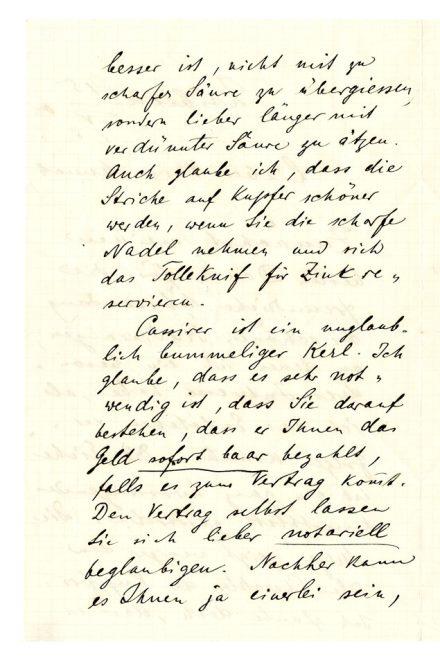 besser ist, nicht mit zu
scharfer Säure zu übergiessen,
sondern lieber länger mit
verdünnter Säure zu ätzen.
Auch glaube ich, dass die
Striche auf Kupfer schöner
werden, wenn Sie die scharfe
Nadel nehmen und sich
das Tolleknif für Zink re„
servieren.
Cassirer ist ein unglaub-
lich bummeliger Kerl. Ich
glaube, dass es sehr not„
wendig ist, dass Sie darauf
bestehen, dass er Ihnen das
Geld sofort baar bezahlt,
falls es zum Vertrag kom̄t.
Den Vertrag selbst lassen
Sie sich lieber notariell
beglaubigen. Nachher kann
es Ihnen ja einerlei sein,